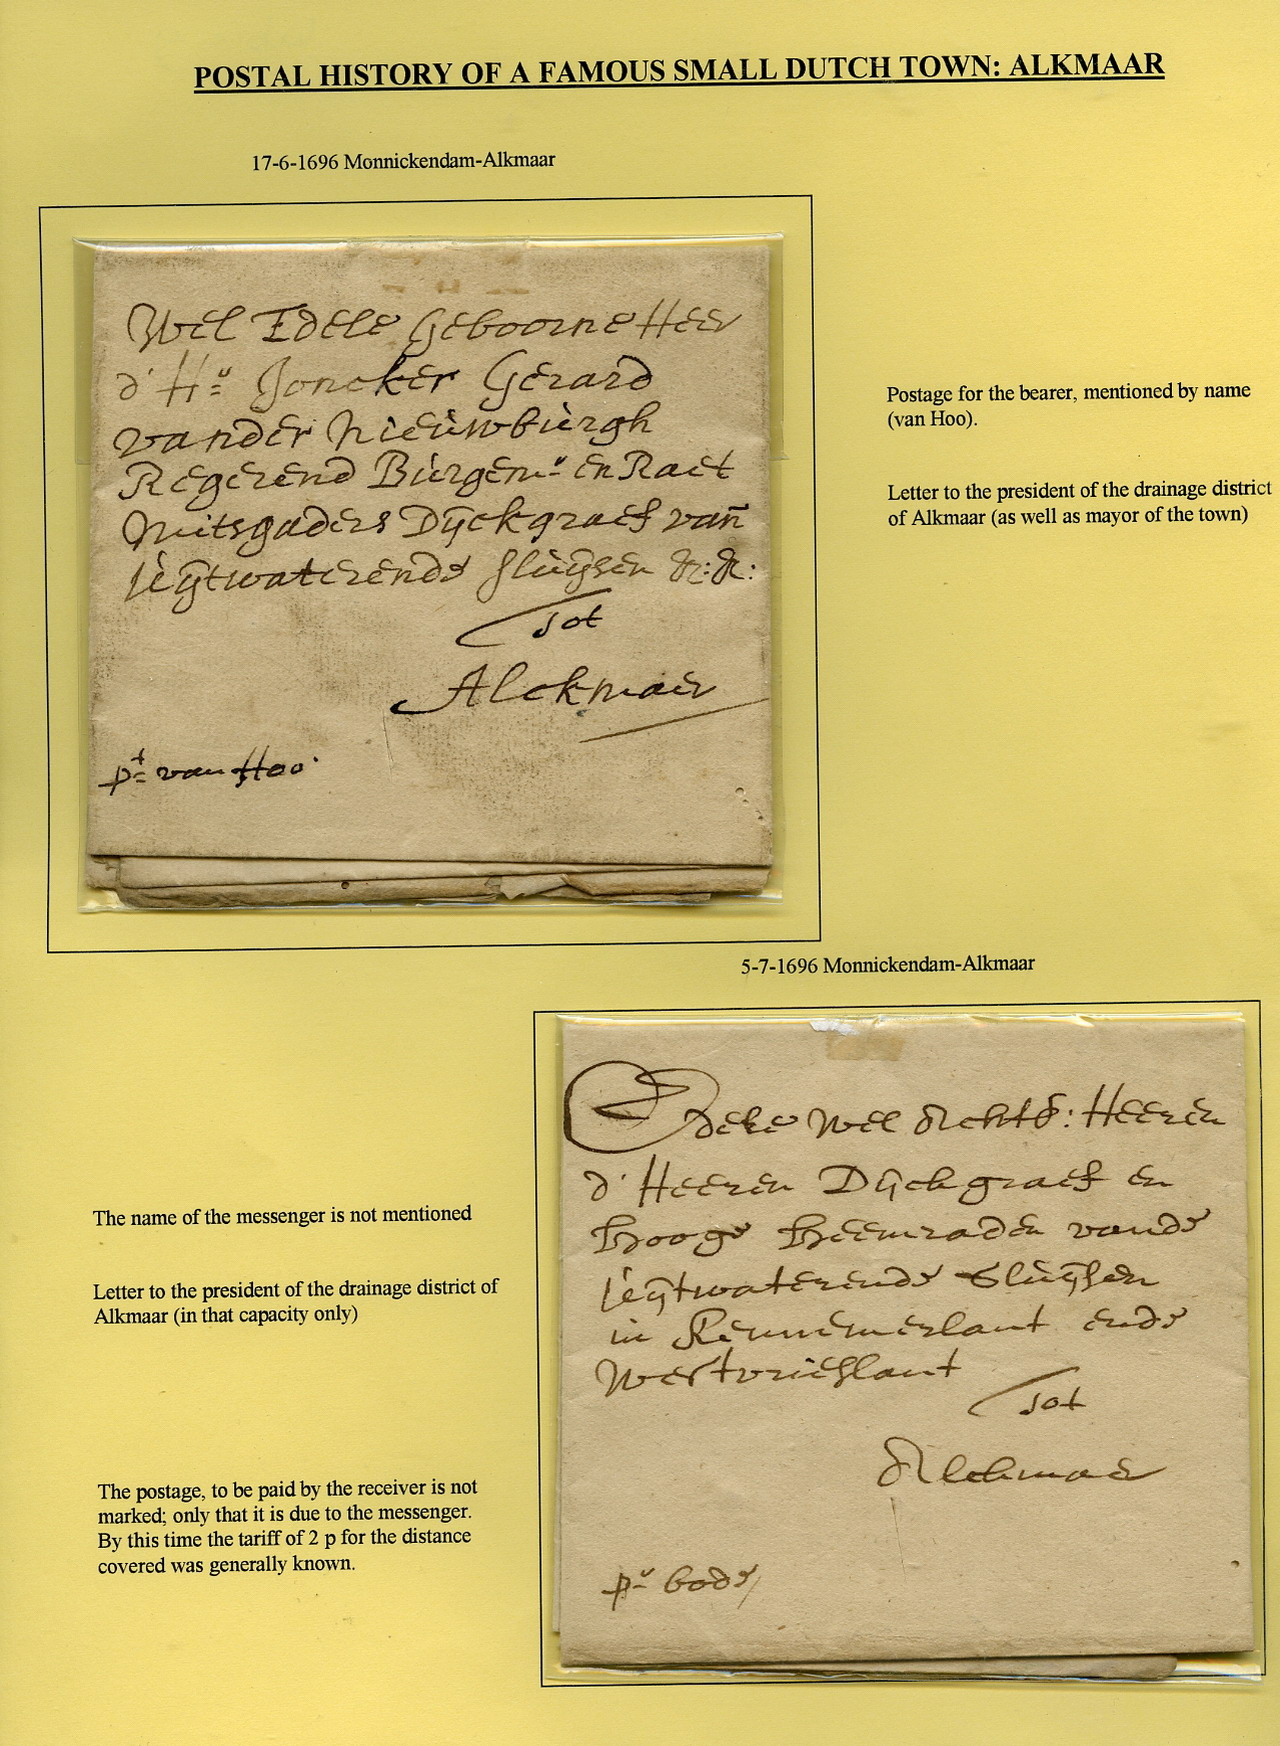 POSTAL HISTORY OF A FAMOUS SMALL DUTCH TOWN: ALKMAAR
17-6-1696 Monnickendam-Alkmaar
Wel Edele Geboorne Heer
d' Hr Joncker Gerard
vander Nieuwburgh
Regerend Burgemr en Raet
Mitsgaders Dyckgraef van
uytwaterende sluysen &c: &c:
Tot
Alckmaer
pt van Hoo
Postage for the bearer, mentioned by name
(van Hoo).
Letter to the president of the drainage district
of Alkmaar (as well as mayor of the town)
5-7-1696 Monnickendam-Alkmaar
Edele Wel Achtb: Heeren
d' Heeren Dyckgraef en
hooge heemraden vande
uytwaterende Sluysen
in Kennemerlant ende
Westvrieslant
Tot
Alckmaer
pr bode
The name of the messenger is not mentioned
Letter to the president of the drainage district of
Alkmaar (in that capacity only)
The postage, to be paid by the receiver is not
marked; only that it is due to the messenger.
By this time the tariff of 2 p for the distance
covered was generally known.